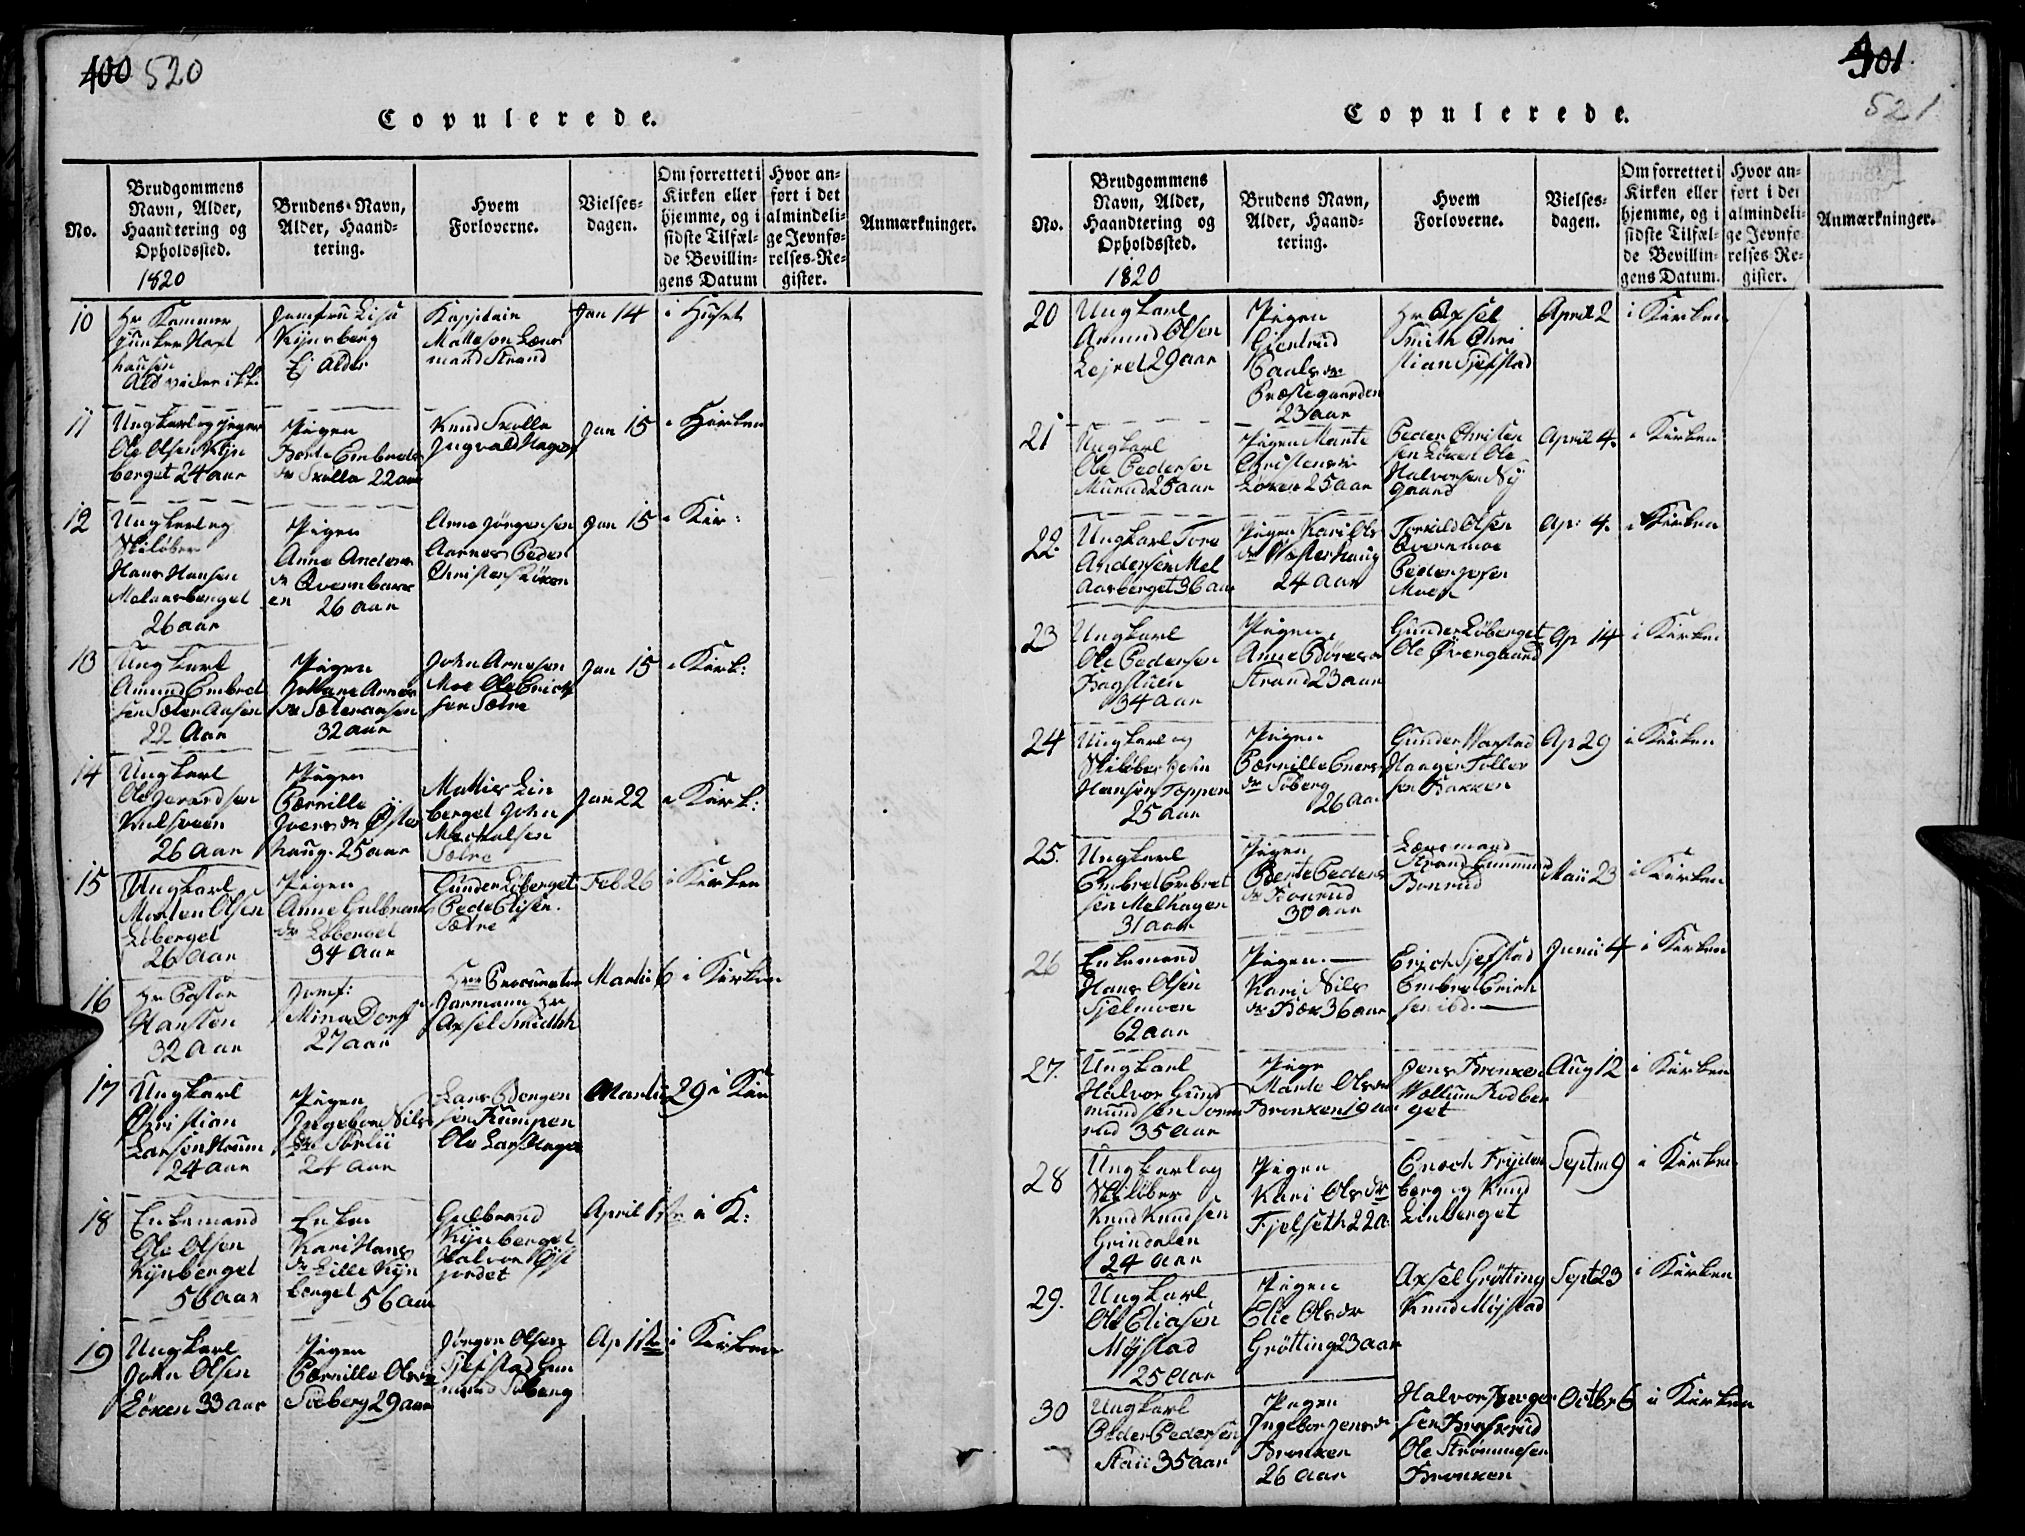 400 520
Copulerede.
No.
Brudgommens
Navn, Alder,
Haandtering og
Opholdssted.
1820
Brudens Navn,
Alder, Haand-
tering.
Hvem
Forloverne.
Vielses-
dagen.
Om forrettet i
Kirken eller
hjemme, og i
sidste Tilfæl-
de Bevillin-
gens Datum
Hvor an-
ført i det
almindeli-
ge Jevnfø-
relses-Re-
gister.
Anmærkninger.
10
Hr Kammer
junker Haxt
hausen
Jomfru Lisa
Kynsberg
Ej Alder
Kapitain
Matteson Læns
mand Strand
Jan 14
i Huset
11
Ungkarl og
Ole Olsen Kyn
berget 24 aar
Pigen
Berte Embrets
dr Skolla 22 aar
Knud Skolla
Ingvald Hagen
Jan 15
i Kirken
12
Ungkarl og
Skiløber
Hans Hansen
Melaasberget
26 aar
Pigen
Anne Anders
dr Qvernbæk
en 26 aar
Arne Jörgensen
Aarnes Peder
Christens Löken
Jan 15
i Kir:
13
Ung Karl
Amund Embret
sen Sæter Aasen
22 Aar
Pigen
Johane Arnes
dr Sæteraasen
32 aar
John Arnesen
Moe Ole Erich
sen Sætre
Jan 15
i Kirk:
14
Ungkarl
Ole Jverdsen
Knulsveen
26 aar
Pigen
Pærnille
Jversdr Öster
haug. 25 aar
Mattis Lin
berget John
Michelsen
Sætre
Jan 22
i Kirk:
15
Ungkarl
Morten Olsen
Löberget
26 aar
Pigen
Anne Gulbrans
dr Löberget
34 aar
Gunder Löberget
Peder Elisen.
Sætre
Feb 26
i Kirken
16
Hr Pastor
Hansteen
32 aar
Jomf:
Mina Dorff
27 aar
Hrr Procurator
Jarmann Hr
Axsel Smidth
Martii 6
i Kirken
17
Ungkarl
Christian
Larsen Houm
24 aar
Pigen
Ingebor Nils
dr Storlii
24 aar
Lars Berger
sen Kumpen
Ole Lars
Martii 29
i Kir
18
Enkemand
Ole Olsen
Kynberget
56 aar
Enken
Kari Hans
dr Lille Kyn
berget 56 aar
Gulbrand
Kynberget
Halvor Öst
jordet
April 1ste
i K:
19
Ungkarl
John Olsen
Löken 33 aar
Pigen
Pærnille Olsdr
Söeberg 29 aar
Jörgen Olsen
Sjefstad Gun
mund Söberg
Ap 1ste
i Kirken
401
521
Copulerede.
No.
Brudgommens
Navn, Alder,
Haandtering og
Opholdssted.
1820
Brudens Navn,
Alder, Haand-
tering.
Hvem
Forloverne.
Vielses-
dagen.
Om forrettet i
Kirken eller
hjemme, og i
sidste Tilfæl-
de Bevillin-
gens Datum.
Hvor an-
ført i det
almindeli-
ge Jevnfø-
relses-Re-
gister.
Anmærkninger.
20
Ungkarl
Amund Olsen
Lejret 29 aar
Pigen
Giertrud
Paalsdr
Præstegaarden
23 aar
Hr Axsel
Smith Chri
stian Sjefstad
April 2
i Kirken
21
Ungkarl
Ole Pedersen
Murud 25 aar
Pigen Marte
Christensdr
Löken 25 aar
Peder Christen
sen Löken Ole
Halvorsen Ny
gaard
April 4.
i Kirken
22.
Ungkarl Tore
Andersen Mel
aasberget 36 aar
Pigen Kari Ols
dr Westerhaug
24 aar
Torkild Olsen
Qvernmoe
Peder
Moen
Ap: 4.
i Kirken
23
Ungkarl
Ole Pedersen
Bagstuen
34 aar
Pigen
Anne Börresdr
Strand 23 aar
Gunder Löberget
Ole Övergaard
Ap 14
i Kirken
24
Ungkarl og
Skiløber John
Hansen Toppen
25 aar
Pigen
Pærnille Eners
dr Söberg
26 aar
Gunder Harstad
Haagen Toller
sen Bakken
Ap 29
i Kirken
25.
Ungkarl
Embret Embret
sen Melhagen
31 aar
Pigen
Berte Peders
dr Bonrud
30 aar
Lænsmand
Strand Emmund
Bonrud
Maii 23
i Kirken
26
Enkemand
Hans Olsen
Sjelmoen
62 aar
Pigen.
Kari Nils
dr Bæk 36 aar
Erich Sjefstad
Embret Erich
sen ibd.
Junii 4
i Kirken
27.
Ungkarl
Halvor Gund
mundsen Sorm
rud 35 aar
Pige
Marte Olsdr
Bronken 19 aar
Jens Bronken
Wollum Rodber
get
Aug 12
i Kirken
28
Ungkarl og
Skiløber
Knud Knudsen
Grindalen
24 aar
Pigen
Kari Olsdr
Fjelseth 22 a:
Enoch Fryden
berg og Knud
Linberget
Septm 9
i Kirken
29.
Ungkarl
Ole Eliasen
Möjstad
25 aar
Pigen
Elie Olsdr
Grötting 23 aar
Axsel Grötting
Knud Möjstad
Sept 23
i Kirken
30
Ungkarl
Peder Pedersen
Staii 35 aar
Pigen
Ingebor Jensdr
Bronken
26 aar
Halvor Berger
sen Braskrud
Ole Strömmesen
Bronken
Octbr 6
i Kirken